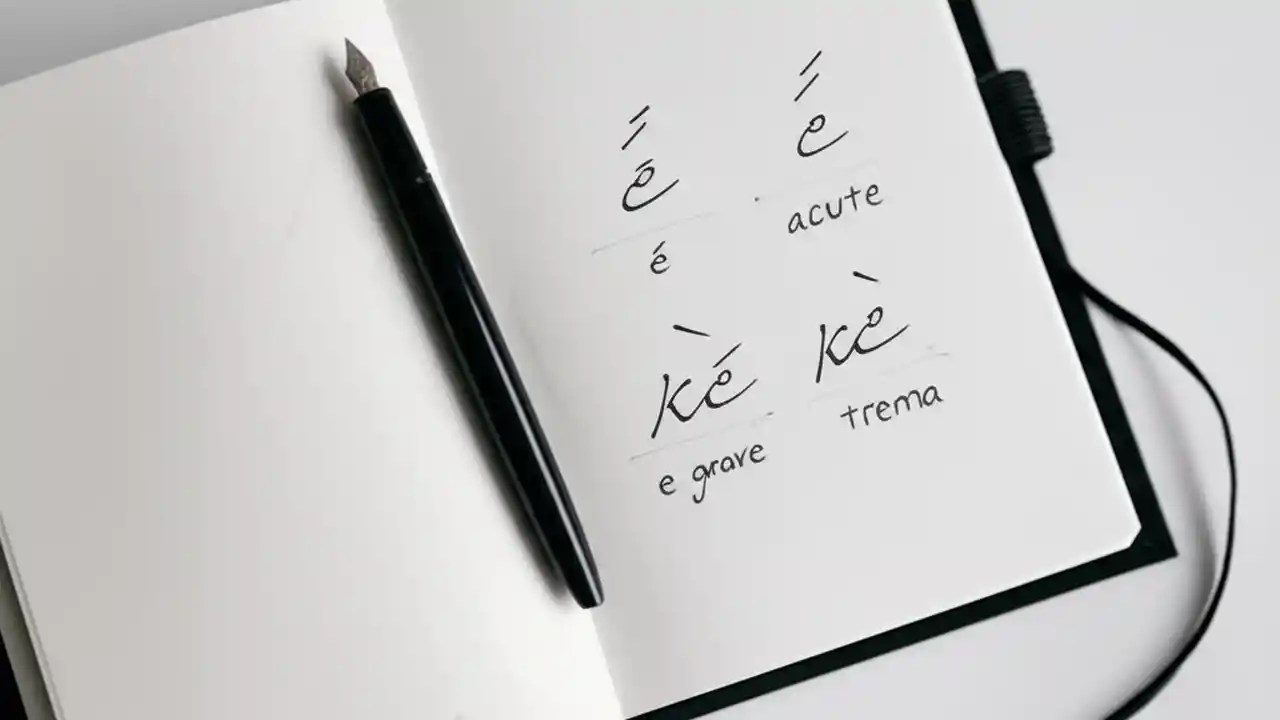 é acute
ké kè
e grave trema